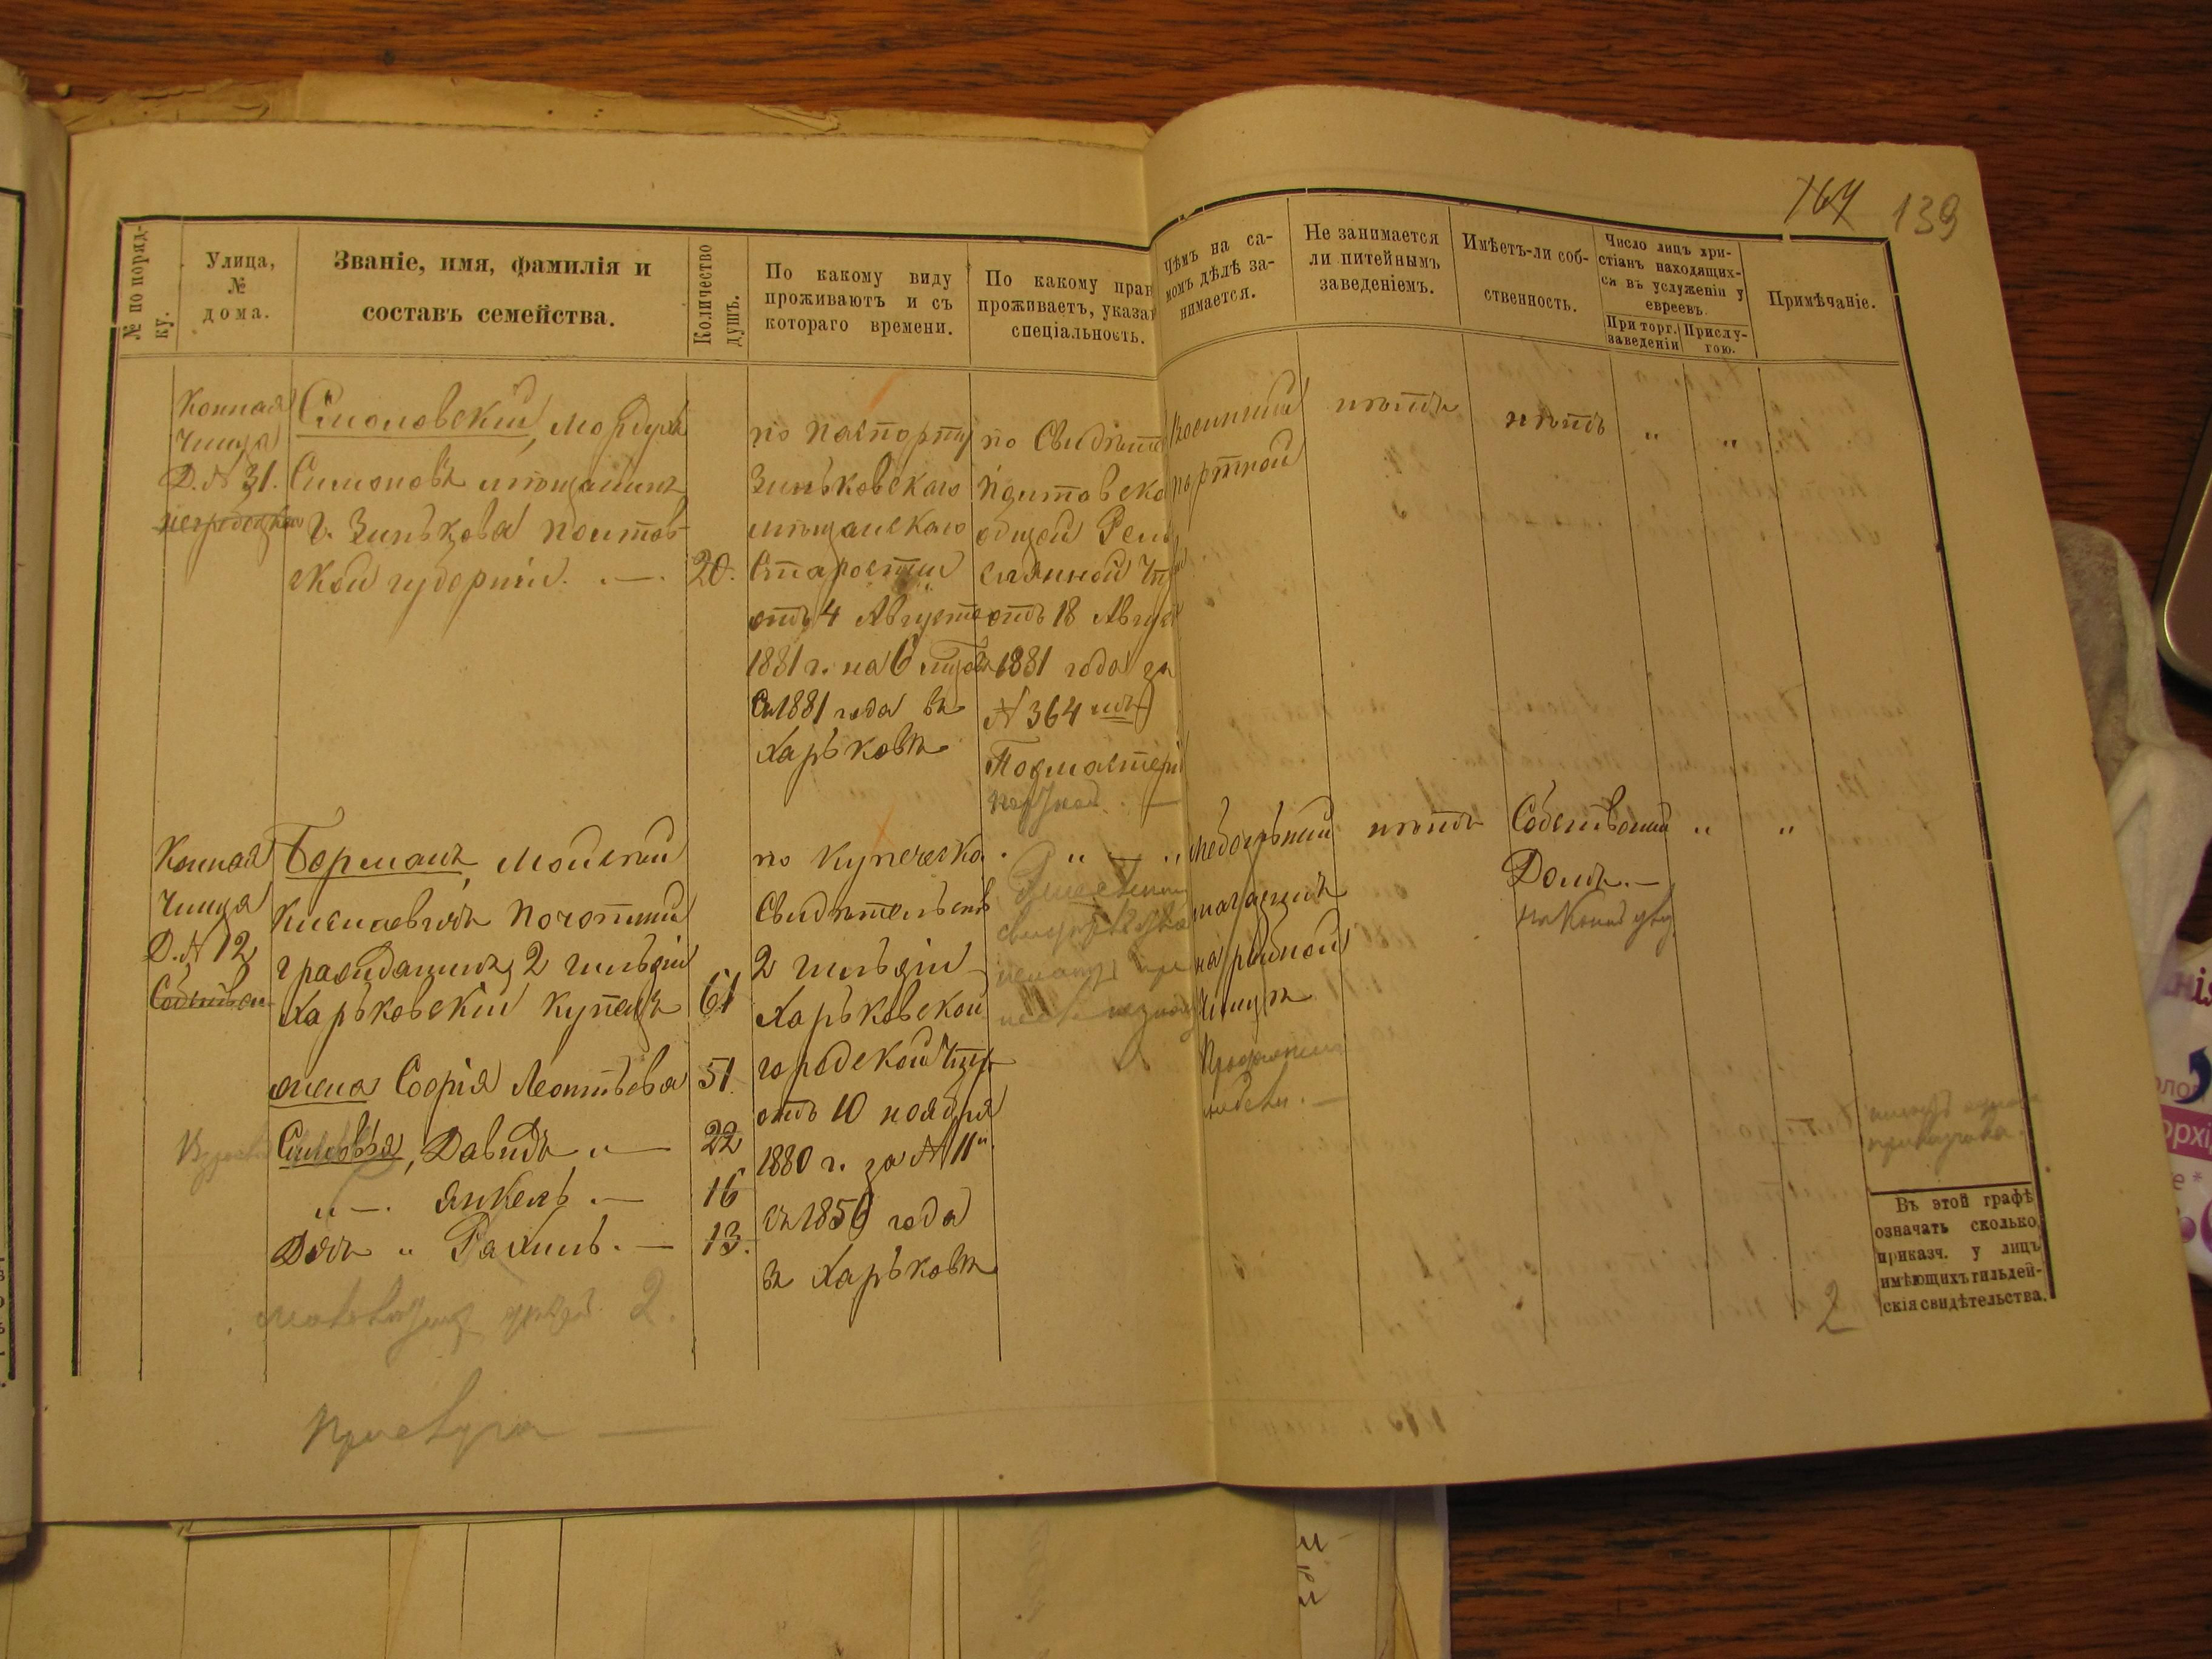 139
№ по поряд-
ку.
Улица,
№
дома.
Званіе, имя, фамилія и
составъ семейства.
Количество
душъ.
По какому виду
проживаютъ и съ
котораго времени.
По какому прав
проживаетъ, указа
спеціальность.
Чѣмъ на са-
момъ дѣлѣ за-
нимается.
Не занимается
ли питейнымъ
заведеніемъ.
Имѣетъ-ли соб-
ственность.
Число лицъ хри-
стіанъ находящих-
ся въ услуженіи у
евреевъ.
При торг.
заведеніи
Прислу-
гою.
Примѣчаніе.
Конная
Улица
Д. № 31.
Смоловскій, Мордухъ
Симоновъ мѣщанинъ
г. Зинькова Полтав-
ской губерніи. —
20.
по паспорту
Зиньковскаго
мѣщанскаго
Старосты
отъ 4 Августа
1881 г. на 6
Съ 1881 года въ
Харьковѣ
по Свидѣте
Полтавско
общей Реме
сленной Уп
отъ 18 Авгус
1881 года за
№ 364
Подмастері
портной
нѣтъ
нѣтъ
" "
Конная
Улица
Д. № 12
Борманъ, Мойсей
почотный
гражданинъ, 2 гильдіи
Харьковскій купецъ
61
жена Софія Леонтьева
51.
Сыновья, Давидъ " —
22
" —. Янкель. —
16
Дочь " Рахиль. —
13.
по купеческо
Свидѣтельств
2 гильдіи
Харьковской
городской Упр
отъ 10 ноября
1880 г. за № 11
съ 1856 года
въ Харьковѣ
" — "
Мебельный
магазинъ
на рыбной
Улицѣ
нѣтъ
Собственный
Домъ. —
" "
2.
Прислуга —
Въ этой графѣ
означать сколько
приказч. у лицъ
имѣющихъ гильдей-
скія свидѣтельства.
2